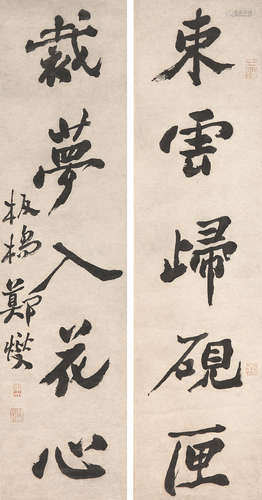 東雲歸硯匣
裁夢入花心
板橋鄭燮